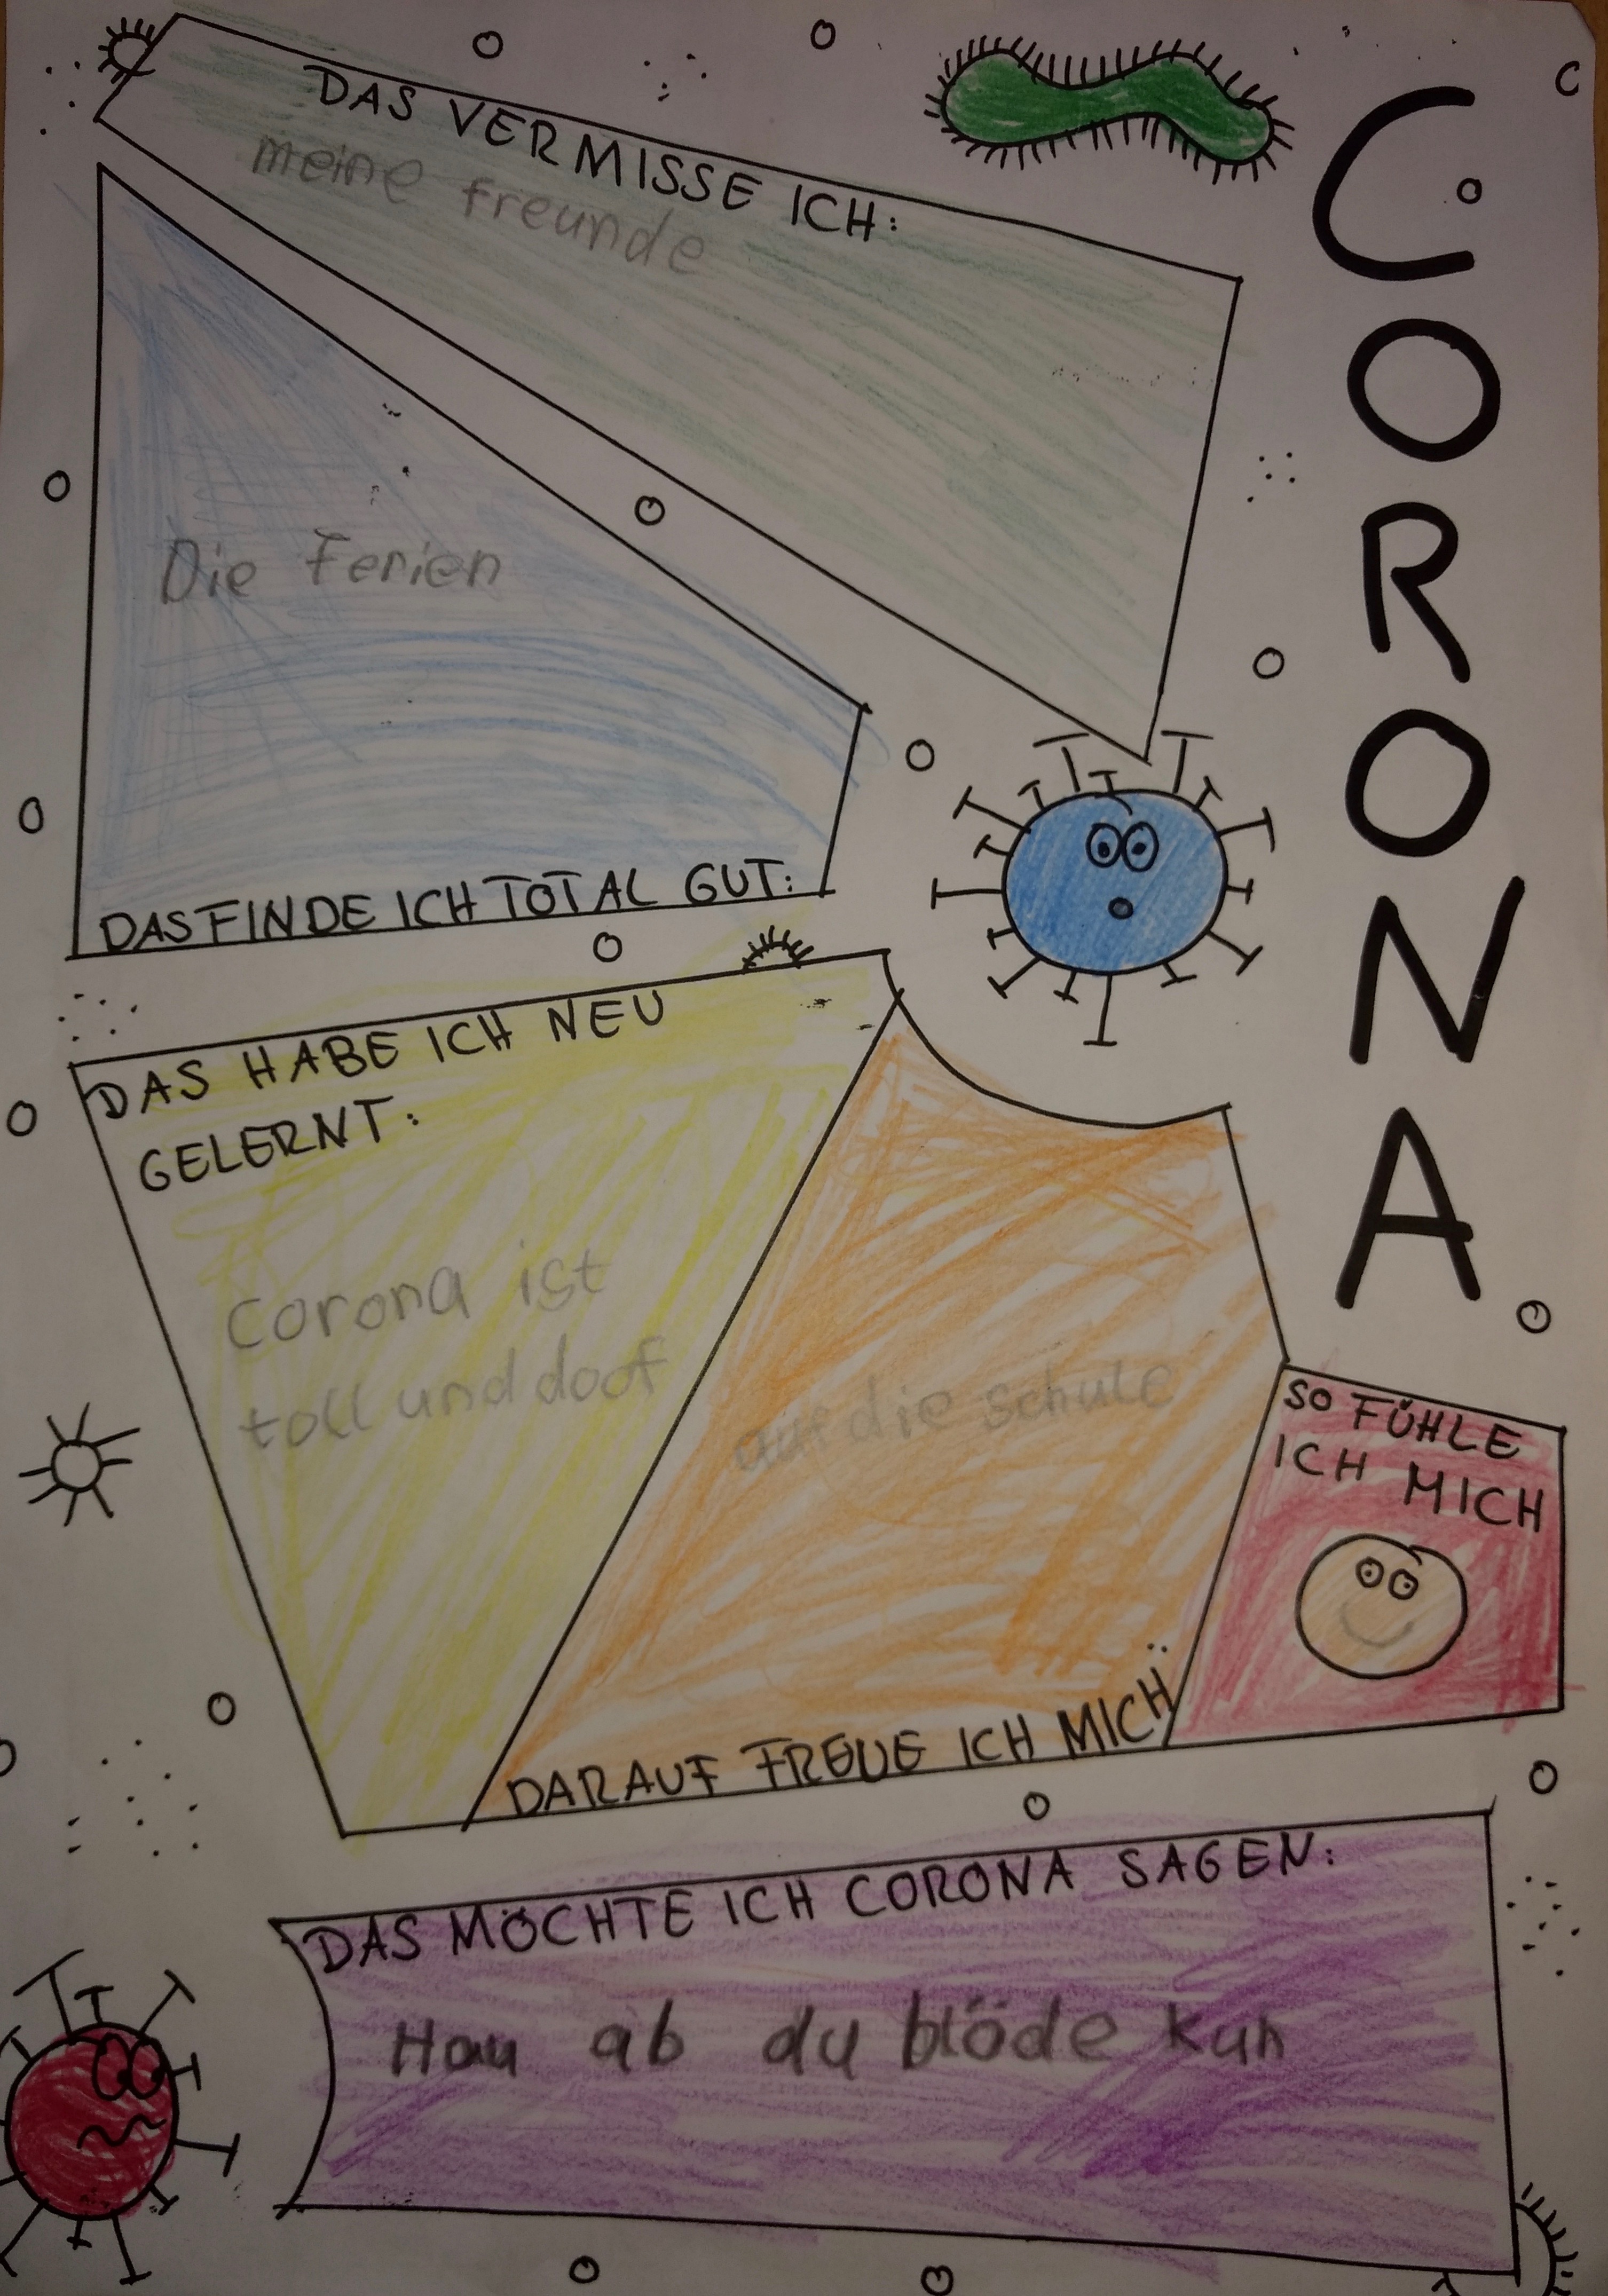 DAS VERMISSE ICH:
meine freunde
CORONA
Die Ferien
DAS FINDE ICH TOTAL GUT:
DAS HABE ICH NEU
GELERNT:
Corona ist
toll und doof
auf die schule
DARAUF FREUE ICH MICH:
SO FÜHLE
ICH MICH
DAS MÖCHTE ICH CORONA SAGEN:
Hau ab du blöde kuh